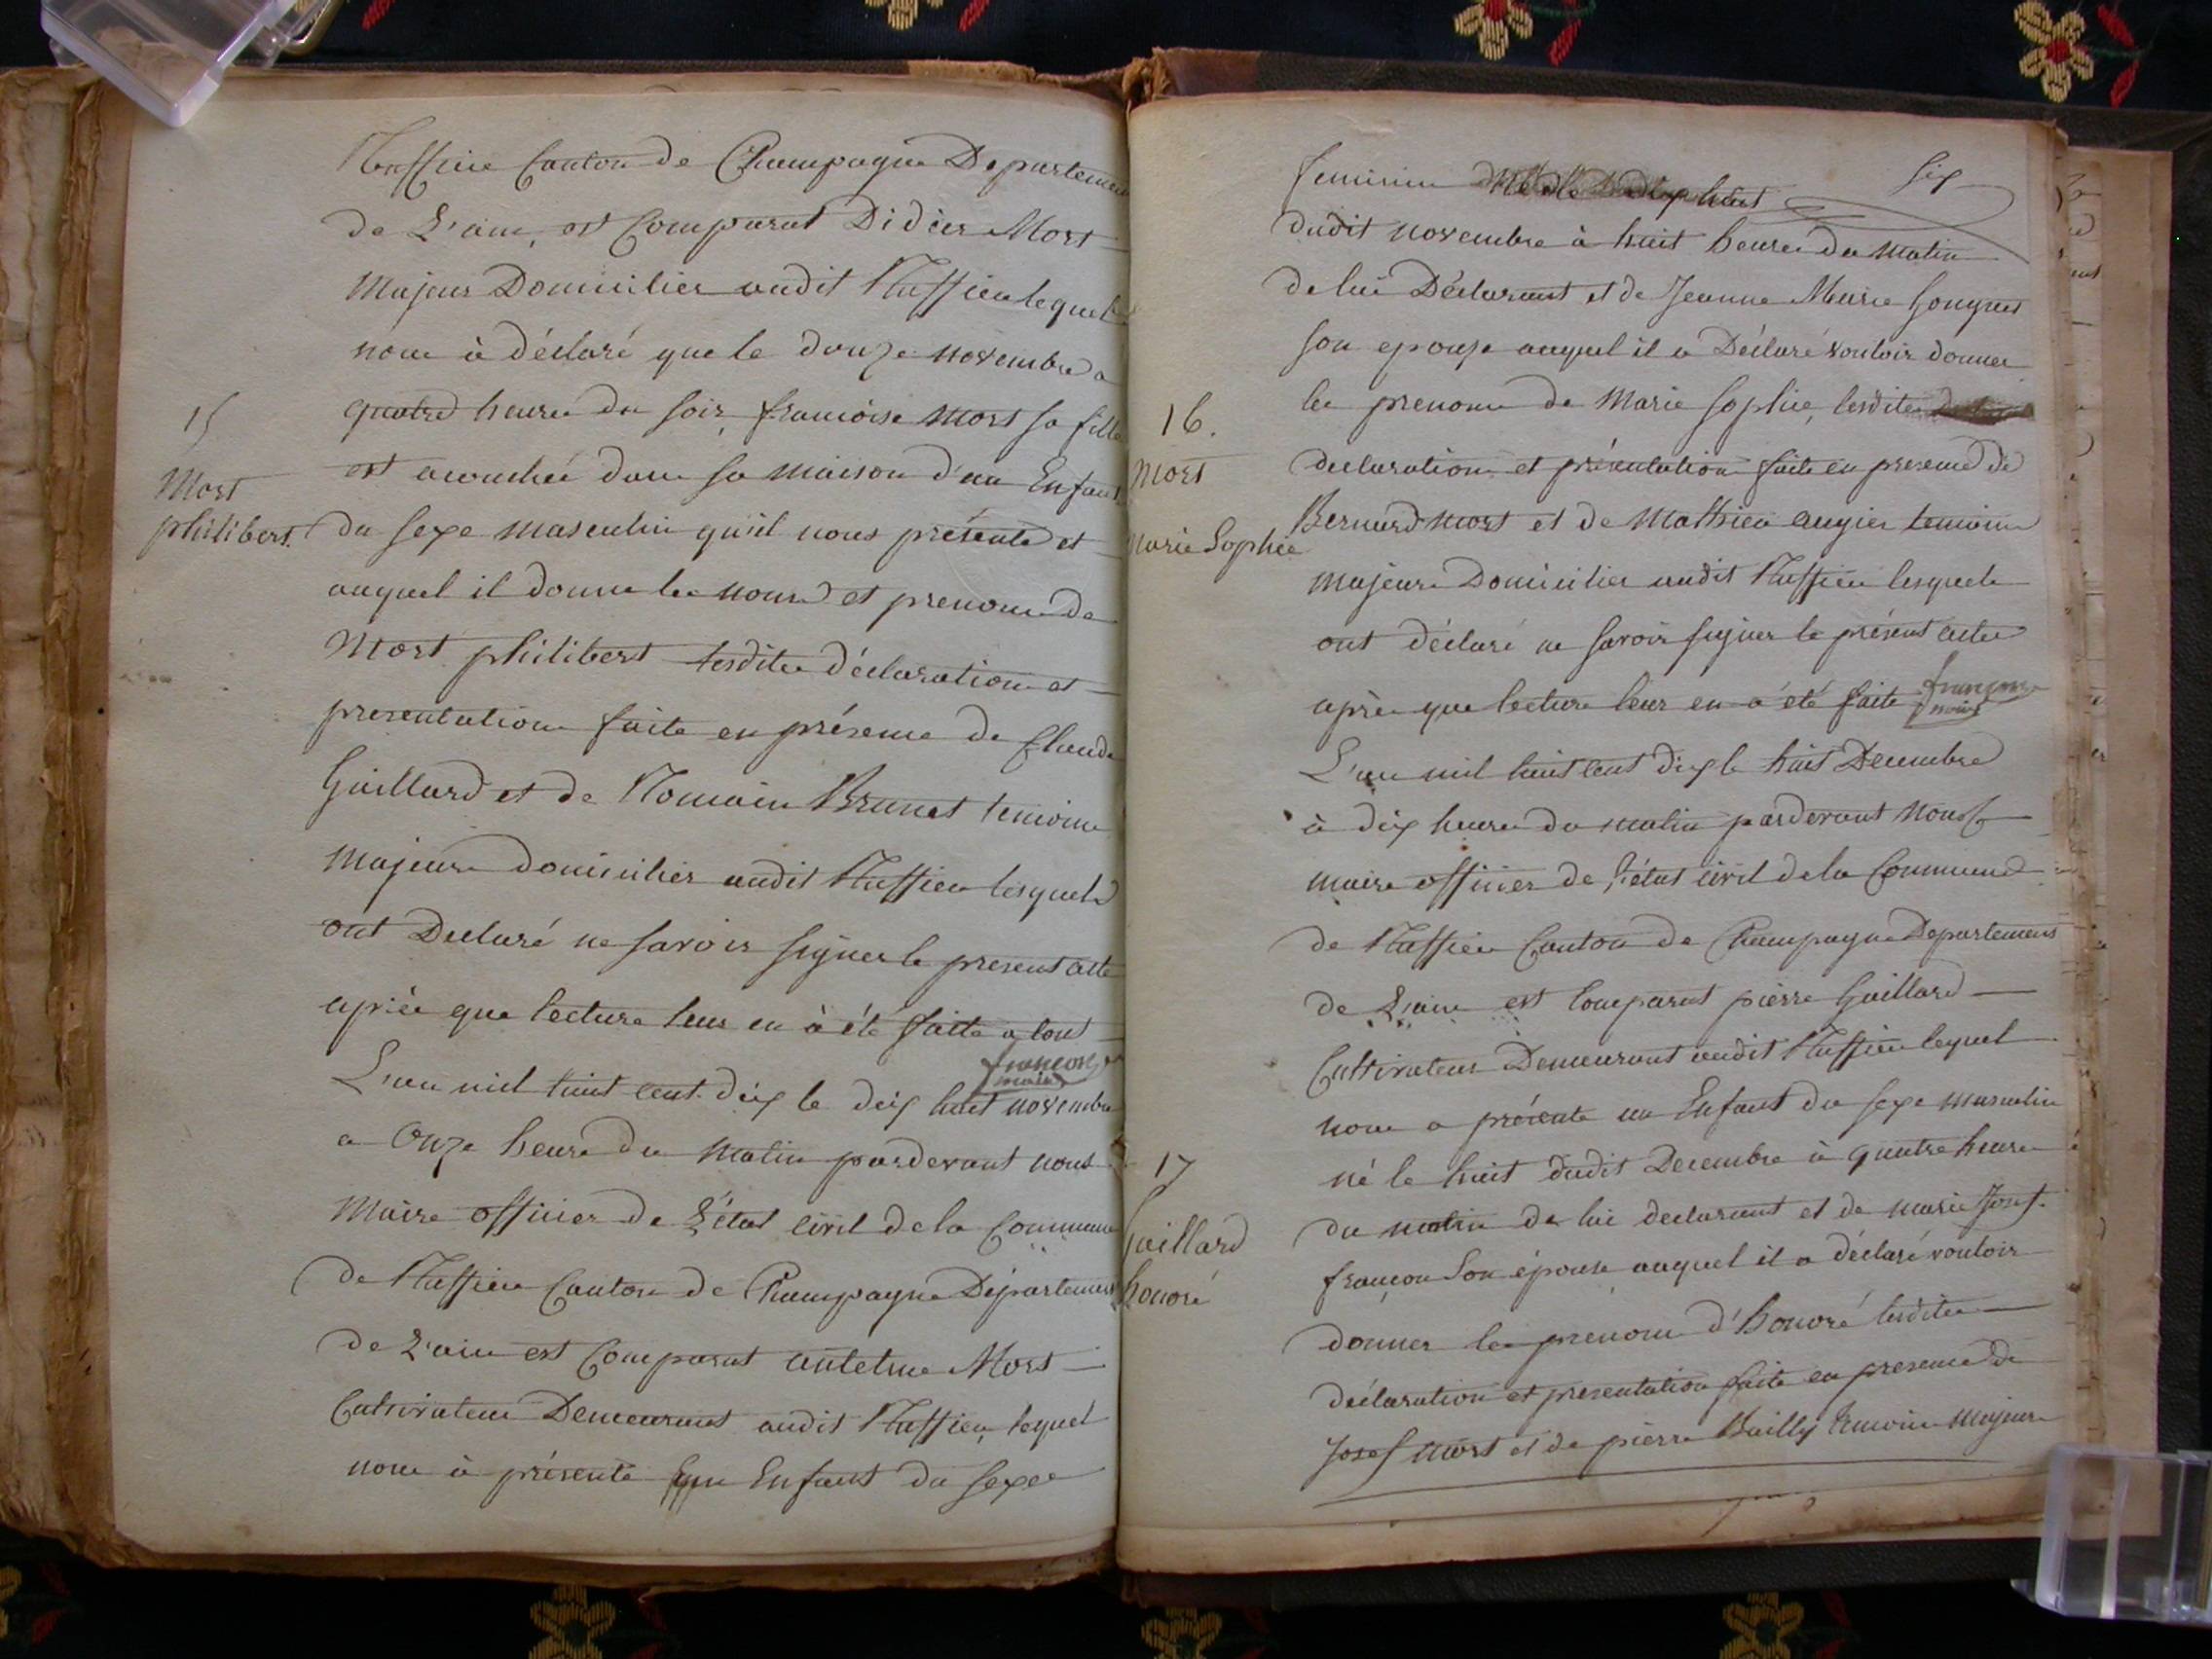 Ruffieu Canton de Champagne Departement
de L'ain, est Comparut Didier Mort
Majeur Domicilier audit Ruffieu lequel
nous à déclaré que le douze novembre a
quatre heures du soir, francoise Mort sa fille
15
est acouchée dans sa maison d'un Enfant
Mort
philibert.
du sexe masculin qu'il nous présente et
auquel il donne les noms et prenoms de
Mort philibert lesdites déclaration et
presentation faite en présence de Claude
Guillard et de Romain Brunet temoins
Majeurs domicilier audit Ruffieu lesquels
ont Declaré ne savoir signer le present acte
après que lecture leur en à été faite a tout
françon
maire
L'an mil huit cent dix le dix huit novembre
a Onze heures du matin pardevant nous
Maire officier de L'état civil de la Commune
de Ruffieu Canton de Champagne Département
de L'ain est Comparut antelme Mort
Cultivateur Demeurant audit Ruffieu, lequel
nous à présenté un Enfant du sexe
six
feminin
dudit novembre à huit heures du matin
de lui Déclarant et de Jeanne Marie
son epouse auquel il a Déclaré vouloir donner
les prenoms de Marie sophie, lesdites
16.
Mort
Marie Sophie
declaration et présentation faite en presence de
Bernard mort et de Mathieu augier temoins
majeurs Domicilier audit Ruffieu lesquels
ont déclaré ne savoir signer le présent acte
après que lecture leur en a été faite
françon
maire
L'an mil huit cent dix le huit Decembre
à dix heures du matin pardevant Nous
maire officier de L'état civil de la Commune
de Ruffieu Canton de Champagne Departement
de L'ain est Comparut pierre Guillard
Cultivateur Demeurant audit Ruffieu lequel
nous a présenté un Enfant du sexe masculin
né le huit dudit Decembre à quatre heures
17
Guillard
honoré
du matin de lui declarant et de marie Josef.
françon Son épouse auquel il a déclaré vouloir
donner les prenoms d'honoré lesdites
déclaration et presentation faite en presence de
Josef mort et de pierre Bailly temoins majeurs